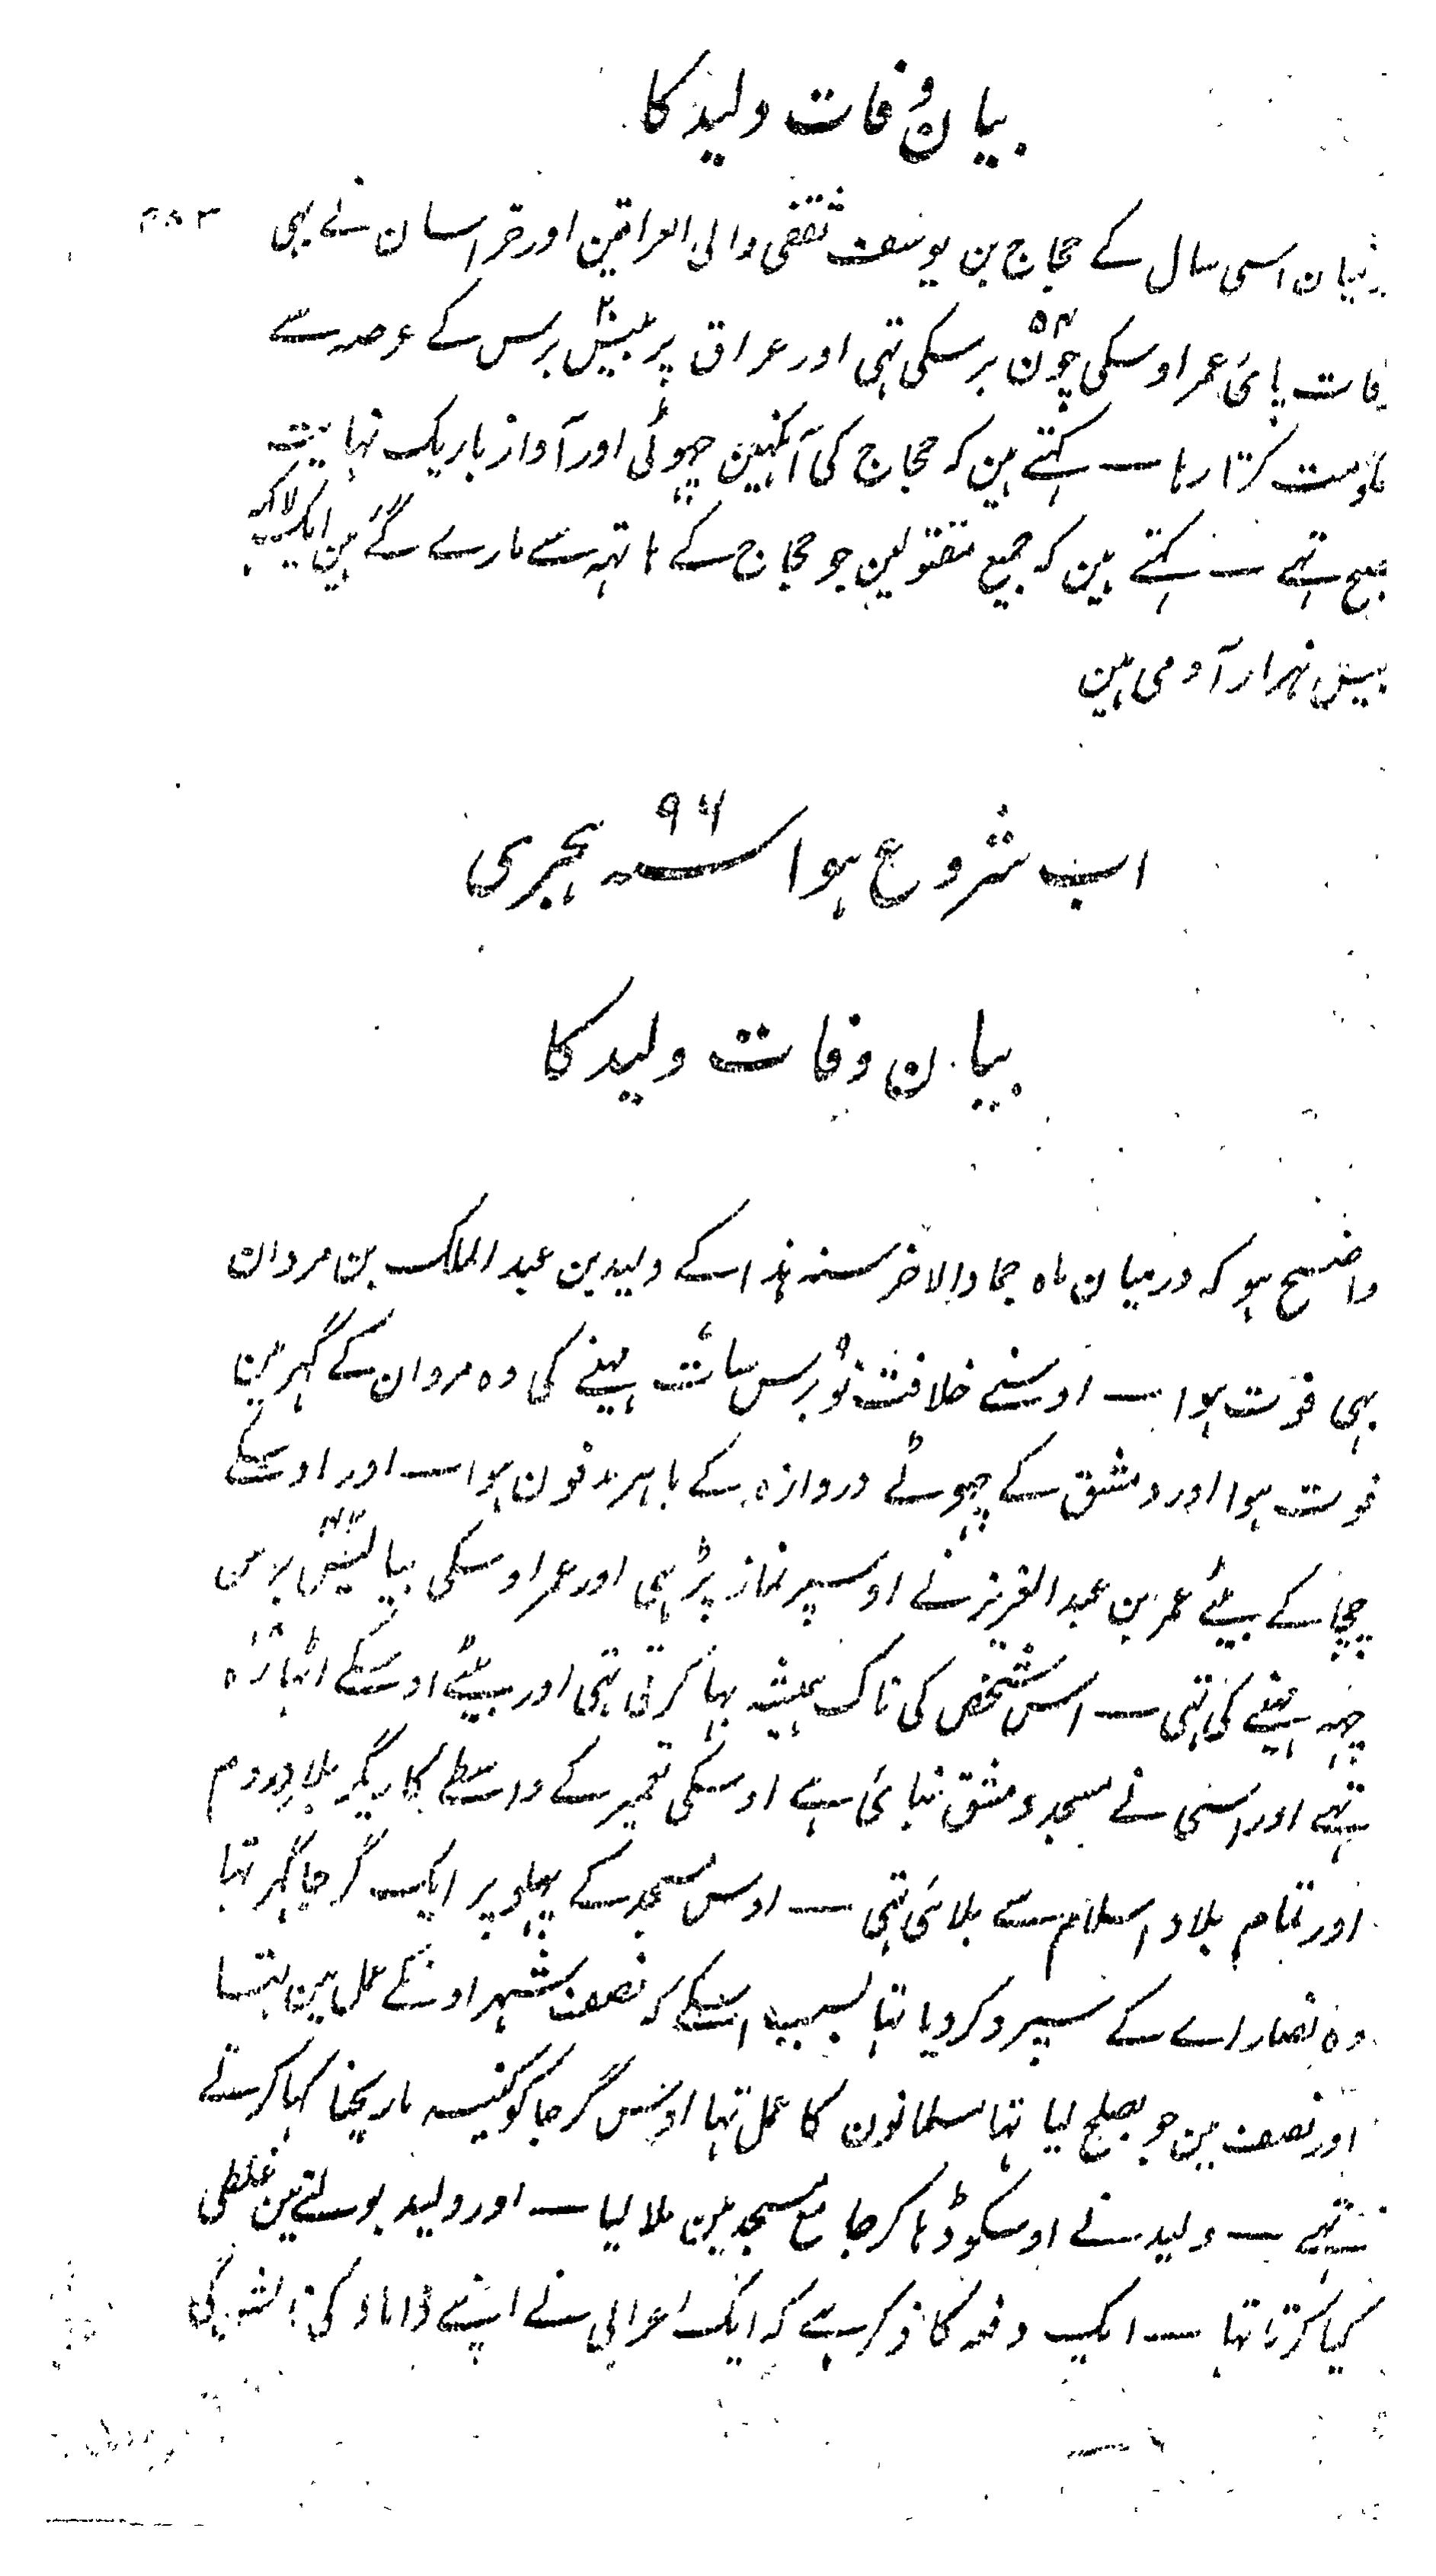 بیان وفات ولید کا
۳۸۳
درمیان اسی سال کے حجاج بن یوسف ثقفی والی العراقین اور خراسان نے بہی
وفات پائی عمر اوسکی چون ۵۴ برسکی تہی اور عراق پر بیس ۲۰ برس کے عرصہ سے
حکومت کرتا رہا ــ کہتے ہین کہ حجاج کی آنکہین چہوٹی اور آواز باریک نہایت
فصیح تہے ــ کہتے ہین کہ جمیع مقتولین جو حجاج کے ہاتہہ سے مارے گئے ہین ایک لاکہہ
بیس ہزار آدمی ہین
اب شروع ہوا سنہ ۹۶ ہجری
بیان وفات ولید کا
واضح ہو کہ درمیان ماہ جمادالاخر سنہ ہذا کے ولید بن عبد الملک بن مروان
بہی فوت ہوا ــ اوسنے خلافت نو ۹ برس سات ۷ مہینے کی وہ مروان کے گہر مین
فوت ہوا اور دمشق کے چہوٹے دروازہ کے باہر مدفون ہوا ــ اور اوسکے
چچا کے بیٹے عمر بن عبد العزیز نے اوسپر نماز پڑہی اور عمر اوسکی بیالیس ۴۲ برس
چہہ مہینے کی تہی ــ اس شخص کی ناک ہمیشہ بہا کرتی تہی اور بیٹے اوسکے اٹہارہ ۱۸
تہے اور اسنی نے مسجد دمشق بنائی ہے اوسکی تعمیر کے واسطے کاریگر بلاد روم
اور تمام بلاد اسلام سے بلائی تہی ــ اوس مسجد کے پہلو پر ایک گرجا گہر تہا
وہ نصارا ے کے سپرد کر دیا تہا بسبب اسکے کہ نصف شہر اونکے عمل مین تہا
اور نصف مین جو بصلح لیا تہا مسلمانون کا عمل تہا اوس گرجا کو کنیسہ ماریحنا کہا کرتے
تہے ــ ولید نے اوسکو ڈہا کر جامع مسجد مین ملا لیا ــ اور ولید بولنے مین غلطی
کیا کرتا تہا ــ ایک دفعہ کا ذکر ہے کہ ایک اعرابی نے اپنے داماد کی نالش کی